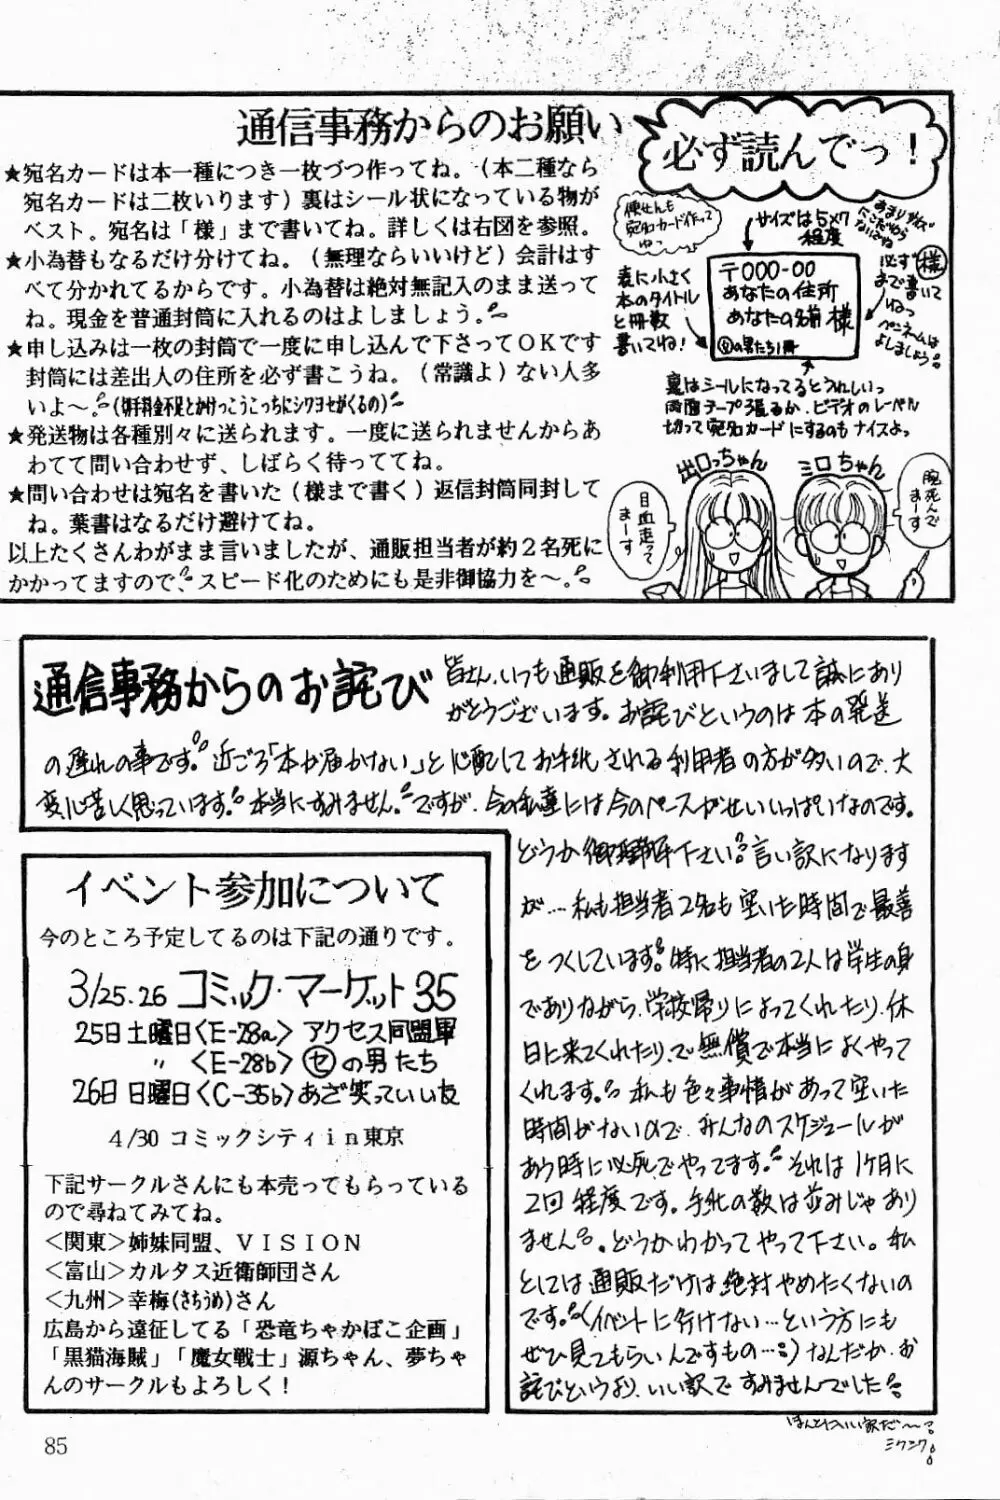 通信事務からのお願い
必ず読んでっ！
★宛名カードは本一種につき一枚づつ作ってね。（本二種なら
宛名カードは二枚いります）裏はシール状になっている物が
ベスト。宛名は「様」まで書いてね。詳しくは右図を参照。
★小為替もなるだけ分けてね。（無理ならいいけど）会計はす
べて分かれてるからです。小為替は絶対無記入のまま送って
ね。現金を普通封筒に入れるのはよしましょう。
★申し込みは一枚の封筒で一度に申し込んで下さってＯＫです
封筒には差出人の住所を必ず書こうね。（常識よ）ない人多
いよ〜。（切手料金不足とかけっこうこっちにシワヨセがくるの）
★発送物は各種別々に送られます。一度に送られませんからあ
わてて問い合わせず、しばらく待っててね。
★問い合わせは宛名を書いた（様まで書く）返信封筒同封して
ね。葉書はなるだけ避けてね。
以上たくさんわがまま言いましたが、通販担当者が約２名死に
かかってますので、スピード化のためにも是非御協力を〜。
便せんも
宛名カード作って
ねっ
サイズは5×7
程度
必ず様
まで書いて
ねっ
ペンネームは
よしましょう
表に小さく
本のタイトル
と冊数
書いてね！
〒000-00
あなたの住所
あなたの名前 様
㋝の男たち1冊
裏はシールになってるとうれしいっ
両面テープ張るか、ビデオのレーベル
切って宛名カードにするのもナイスよっ
出口っちゃん
ミロちゃん
目血走って
まーす
腕死んで
まーす
通信事務からのお詫び
皆さん、いつも通販を御利用下さいまして誠にあり
がとうございます。お詫びというのは本の発送
の遅れの事です。近ごろ「本が届かない」と心配してお手紙される利用者の方が多いので、大
変心苦しく思っています。本当にすみません。ですが、今の私達には今のペースがせいいっぱいなのです。
どうか御理解下さい。言い訳になります
が…私も担当者2名も空いた時間で最善
をつくしています。特に担当者の2人は学生の身
でありながら、学校帰りによってくれたり、休
日に来てくれたり、で無償で本当によくやって
くれます。私も色々事情があって空いた
時間がないので、みんなのスケジュールが
あう時に必死でやってます。それは1ヶ月に
2回程度です。手紙の数は並みじゃあり
ません。どうかわかってやって下さい。私
としては通販だけは絶対やめたくないの
です。（イベントに行けない…という方にも
ぜひ見てもらいんですもの…）なんだか、お
詫びというより、いい訳ですみませんでした
ほんとにいい訳だ〜
ミクニク
イベント参加について
今のところ予定してるのは下記の通りです。
3/25.26 コミック・マーケット35
25日土曜日〈E-28a〉アクセス同盟軍
〃 〈E-28b〉㋝の男たち
26日日曜日〈C-35b〉あざ笑っていい友
４/30 コミックシティｉｎ東京
下記サークルさんにも本売ってもらっている
ので尋ねてみてね。
＜関東＞姉妹同盟、ＶＩＳＩＯＮ
＜富山＞カルタス近衛師団さん
＜九州＞幸梅（さちうめ）さん
広島から遠征してる「恐竜ちゃかぽこ企画」
「黒猫海賊」「魔女戦士」源ちゃん、夢ちゃ
んのサークルもよろしく！
85